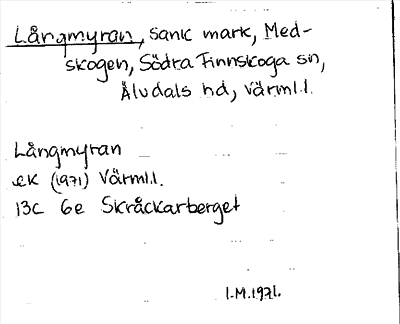 Långmyran, sank mark, Med-
skogen, Södra Finnskoga sn,
Älvdals hd, Värml.l.
Långmyran
EK (1971) Värml.l.
13C 6e Skråckarberget
I.M.1971.